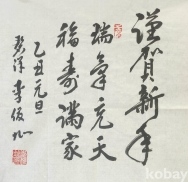 謹賀新年
瑞氣充天
福壽滿家
乙丑元旦
kobay